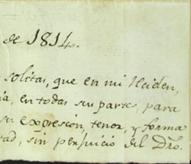 de 1814.
solitas, que en mi Residen,
ia, en todas sus partes, para
su expresion, tenor, y forma
tad, sin perjuicio del Dro.